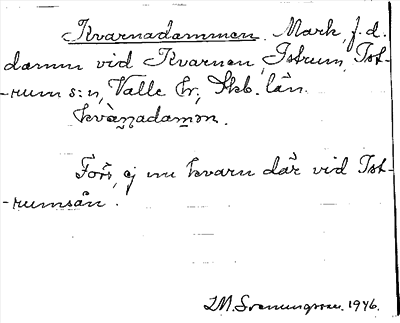 Kvarnadammen, Mark, f.d.
damm vid Kvarnen, Istrum, Ist-
-rum s:n, Valle hr., Skb. län.
kvànadamən.
Förr, ej nu kvarn där vid Ist-
-rumsån.
1946.